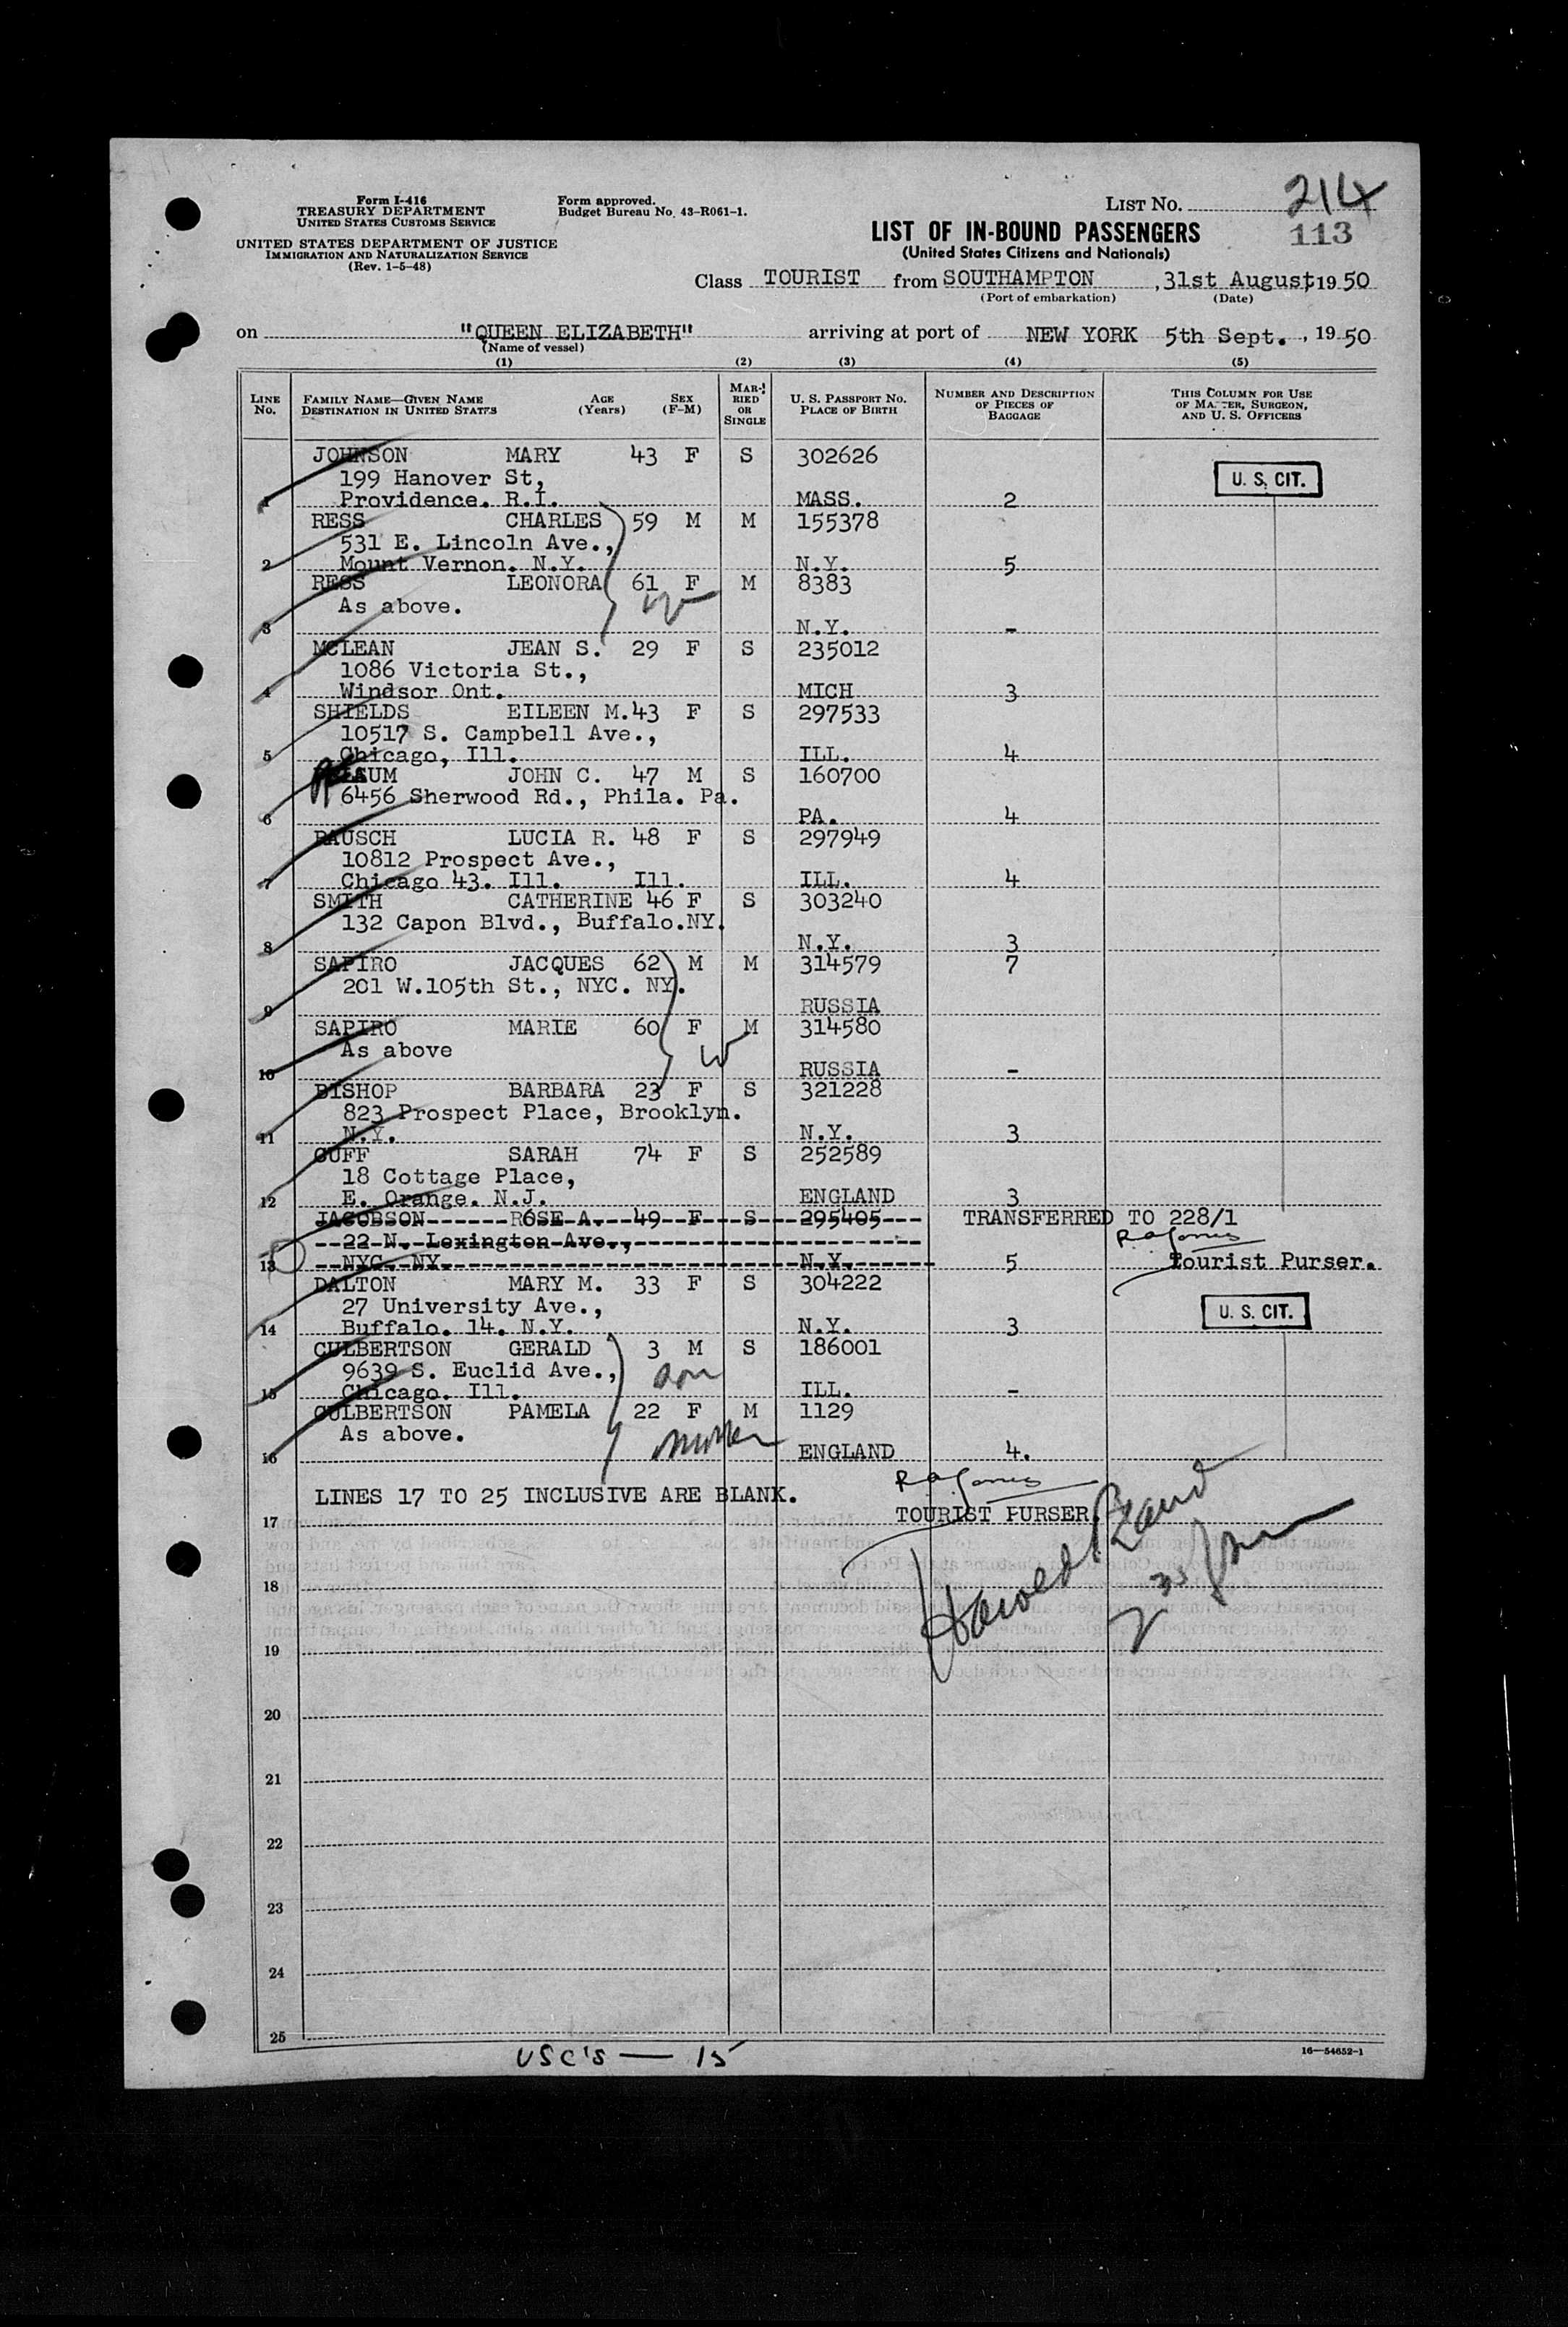 Form I-416
TREASURY DEPARTMENT
UNITED STATES CUSTOMS SERVICE
UNITED STATES DEPARTMENT OF JUSTICE
IMMIGRATION AND NATURALIZATION SERVICE
(Rev. 1-5-48)
Form approved.
Budget Bureau No. 43-R061-1.
LIST NO. 214
113
LIST OF IN-BOUND PASSENGERS
(United States Citizens and Nationals)
Class TOURIST from SOUTHAMPTON , 31st August, 19 50
(Port of embarkation) (Date)
on "QUEEN ELIZABETH" arriving at port of NEW YORK 5th Sept. , 19 50
(Name of vessel)
(1) (2) (3) (4) (5)
LINE No. FAMILY NAME—GIVEN NAME DESTINATION IN UNITED STATES AGE (Years) SEX (F-M) MARRIED OR SINGLE U. S. PASSPORT NO. PLACE OF BIRTH NUMBER AND DESCRIPTION OF PIECES OF BAGGAGE THIS COLUMN FOR USE OF MASTER, SURGEON, AND U. S. OFFICERS
JOHNSON MARY 43 F S 302626
199 Hanover St, U. S. CIT.
1 Providence. R.I. MASS. 2
RESS CHARLES 59 M M 155378
531 E. Lincoln Ave.,
2 Mount Vernon. N.Y. N.Y. 5
RESS LEONORA 61 F M 8383
As above.
3 N.Y. -
MCLEAN JEAN S. 29 F S 235012
1086 Victoria St.,
4 Windsor Ont. MICH 3
SHIELDS EILEEN M. 43 F S 297533
10517 S. Campbell Ave.,
5 Chicago, Ill. ILL. 4
JOHN C. 47 M S 160700
6456 Sherwood Rd., Phila. Pa.
6 PA. 4
RAUSCH LUCIA R. 48 F S 297949
10812 Prospect Ave.,
7 Chicago 43. Ill. Ill. ILL. 4
SMITH CATHERINE 46 F S 303240
132 Capon Blvd., Buffalo.NY.
8 N.Y. 3
SAPIRO JACQUES 62 M M 314579 7
201 W.105th St., NYC. NY.
9 RUSSIA
SAPIRO MARIE 60 F M 314580
As above W
10 RUSSIA -
BISHOP BARBARA 23 F S 321228
823 Prospect Place, Brooklyn.
11 N.Y. N.Y. 3
CUFF SARAH 74 F S 252589
18 Cottage Place,
12 E. Orange. N.J. ENGLAND 3
JACOBSON ROSE A. 49 F S 295405 TRANSFERRED TO 228/1
22 N. Lexington Ave., R A Jones
13 NYC. NY. N.Y. 5 Tourist Purser.
DALTON MARY M. 33 F S 304222
27 University Ave., U. S. CIT.
14 Buffalo. 14. N.Y. N.Y. 3
CULBERTSON GERALD 3 M S 186001
9639 S. Euclid Ave., son
15 Chicago. Ill. ILL. -
CULBERTSON PAMELA 22 F M 1129
As above. mother
16 ENGLAND 4.
R A Jones
LINES 17 TO 25 INCLUSIVE ARE BLANK.
TOURIST PURSER
17
Harold
18
19
20
21
22
23
24
25
USC'S — 15
16—54652-1